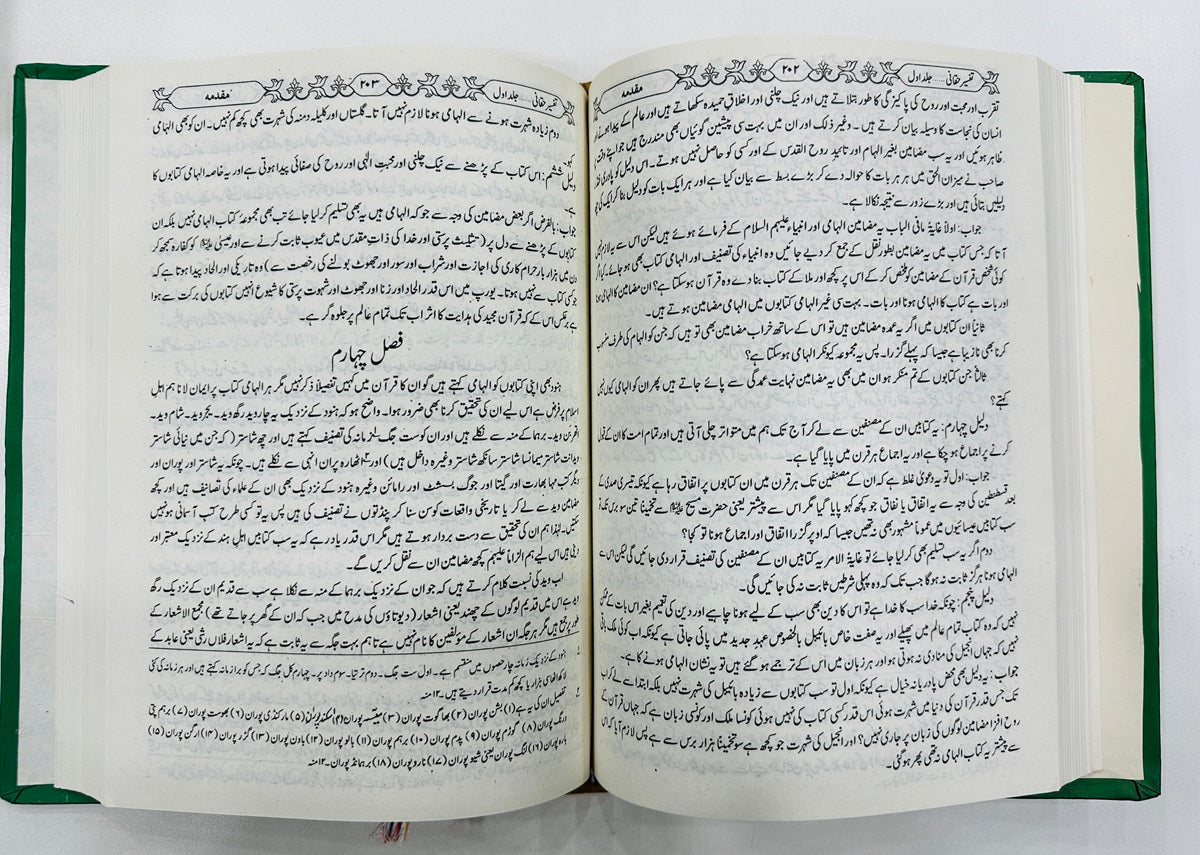 تفسیر حقانی..... جلد اول ۲۰۲ مقدمہ
تقرب اور محبت اور روح کی پاکیزگی کا طور بتلاتے ہیں اور نیک چلنی اور اخلاقِ حمیدہ سکھاتے ہیں اور عالم کے پیدا ہونے
انسان کی نجاست کا وسیلہ بیان کرتے ہیں۔ وغیر ذلک اور ان میں بہت سی پیشین گوئیاں بھی مندرج ہیں جو اپنے وقت
ظاہر ہوئیں اور یہ سب مضامین بغیر الہام اور تائید روح القدس کے اور کسی کو حاصل نہیں ہوتے۔ اس دلیل کو پادری
صاحب نے میزان الحق میں ہر ہر بات کا حوالہ دے کر بڑے بسط سے بیان کیا ہے اور ہر ایک بات کو دلیل بنا کر ایک کی
دلیلیں بتائی ہیں اور بڑے زور سے نتیجہ نکالا ہے۔
جواب: اولاً غایۃ مافی الباب یہ مضامین الہامی اور انبیاء علیہم السلام کے فرمائے ہوئے ہیں لیکن اس سے یہ لازم نہیں
آتا کہ جس کتاب میں یہ مضامین بطور نقل کے جمع کر دیے جائیں وہ انبیاء کی تصنیف اور الہامی کتاب بھی ہو جائے۔ کیا اگر
کوئی شخص قرآن کے مضامین کو ملخص کر کے اس پر کچھ اور ملا کے کتاب بنا دے وہ قرآن ہو سکتا ہے؟ ان مضامین کا الہامی ہونا
اور بات ہے کتاب کا الہامی ہونا اور بات۔ بہت سی غیر الہامی کتابوں میں الہامی مضامین ہوتے ہیں۔
ثانیاً ان کتابوں میں اگر یہ عمدہ مضامین ہیں تو اس کے ساتھ خراب مضامین بھی تو ہیں کہ جن کو الہام کی طرف منسوب
کرنا بھی نازیبا ہے جیسا کہ پہلے گزرا۔ پس یہ مجموعہ کیونکر الہامی ہو سکتا ہے؟
ثالثاً جن کتابوں کے تم منکر ہو ان میں بھی یہ مضامین نہایت عمدگی سے پائے جاتے ہیں پھر ان کو الہامی کیوں نہیں
کہتے؟
دلیل چہارم: یہ کتابیں ان کے مصنفین سے لے کر آج تک ہم میں متواتر چلی آتی ہیں اور تمام امت کا ان کے قبول
کرنے پر اجماع ہو چکا ہے اور یہ اجماع ہر قرن میں پایا گیا ہے۔
جواب: اول تو یہ دعویٰ غلط ہے کہ ان کے مصنفین تک ہر قرن میں ان کتابوں پر اتفاق رہا ہے کیونکہ تیسری صدی کے
بعد قسطنطین کی وجہ سے یہ اتفاق یا نفاق جو کچھ کہو پایا گیا مگر اس سے پیشتر یعنی حضرت مسیح علیہ السلام سے تخمیناً تین سو برس تک تو
سب کتابیں عیسائیوں میں عموماً مشہور بھی نہ تھیں جیسا کہ اوپر گزرا اتفاق اور اجماع ہونا تو کجا؟
دوم اگر یہ سب تسلیم بھی کر لیا جائے تو غایۃ الامر یہ کتابیں ان کے مصنفین کی تصنیف قرار دی جائیں گی لیکن اس سے
الہامی ہونا ہرگز ثابت نہ ہوگا جب تک کہ وہ پہلی شرطیں ثابت نہ کی جائیں گی۔
دلیل پنجم: چونکہ خدا سب کا خدا ہے تو اس کا دین بھی سب کے لیے ہونا چاہیے اور دین کی تعیم بغیر اس بات کے ممکن
نہیں کہ وہ کتاب تمام عالم میں پھیلے اور یہ صفت خاص بائبل بالخصوص عہد جدید میں پائی جاتی ہے کیونکہ اب کوئی ملک
نہیں کہ جہاں انجیل کی منادی نہ ہوتی ہو اور ہر زبان میں اس کے ترجمے ہو گئے ہیں تو یہ نشان الہامی ہونے کا ہے۔
جواب: یہ دلیل بھی محض پادریانہ خیال ہے کیونکہ اول تو سب کتابوں سے زیادہ بائبل کی شہرت نہیں بلکہ ابتدا سے لے کر اب
تک جس قدر قرآن کی دنیا میں شہرت ہوئی اس قدر کسی کتاب کی نہیں ہوئی کونسا ملک اور کونسی زبان ہے کہ جہاں قرآن کے
روح افزا مضامین لوگوں کی زبان پر جاری نہیں؟ اور انجیل کی شہرت جو کچھ ہے سو تخمیناً ہزار برس سے ہے پس لازم آیا کہ اس
سے پیشتر یہ کتاب الہامی نہ تھی پھر ہو گئی۔
تفسیر حقانی..... جلد اول ۲۰۳ مقدمہ
دوم زیادہ شہرت ہونے سے الہامی ہونا لازم نہیں آتا۔ گلستان اور کلیلہ و دمنہ کی شہرت بھی کچھ کم نہیں۔ ان کو بھی الہامی
کہو۔
دلیل ششم: اس کتاب کے پڑھنے سے نیک چلنی اور محبتِ الٰہی اور روح کی صفائی پیدا ہوتی ہے اور یہ خاصہ الہامی کتابوں کا
ہے۔
جواب: بالفرض اگر بعض مضامین کی وجہ سے جو کہ الہامی ہیں یہ بھی تسلیم کر لیا جائے تب بھی مجموعہ کتاب الہامی نہیں بلکہ ان
کتابوں کے پڑھنے سے دل پر (تثلیث پرستی اور خدا کی ذات مقدس میں عیوب ثابت کرنے سے اور عیسیٰ علیہ السلام کو کفارہ سمجھ کر
دن میں ہزار بار حرام کاری کی اجازت اور شراب اور سور اور جھوٹ بولنے کی رخصت سے) وہ تاریکی اور الحاد پیدا ہوتا ہے کہ
جو کسی کتاب سے نہیں ہوتا۔ یورپ میں اس قدر الحاد اور زنا اور جھوٹ اور شہوت پرستی کا شیوع انہیں کتابوں کی برکت سے ہوا
ہے برعکس اس کے کہ قرآن مجید کی ہدایت کا اثر اب تک تمام عالم پر جلوہ گر ہے۔
فصل چہارم
ہنود بھی اپنی کتابوں کو الہامی کہتے ہیں گو ان کا قرآن میں کہیں تفصیلاً ذکر نہیں مگر ہر الہامی کتاب پر ایمان لانا ہم اہل
اسلام پر فرض ہے اس لیے ان کی تحقیق کرنا بھی ضرور ہوا۔ واضح ہو کہ ہنود کے نزدیک یہ چار وید رگھ وید۔ یجر وید۔ شام وید۔
اتھربن وید۔ برہما کے منہ سے نکلے ہیں اور ان کو ست جگ۱ زمانہ کی تصنیف کہتے ہیں اور چھ شاستر ( کہ جن میں نیائی شاستر
ویدانت شاستر میمانسا شاستر سانکھ شاستر وغیرہ داخل ہیں) اور ۲ اٹھارہ پران انہی سے نکلے ہیں۔ چونکہ یہ شاستر اور پوران اور
دیگر کتب مہا بھارت اور گیتا اور جوگ بسشٹ اور رامائن وغیرہ ہنود کے نزدیک بھی ان کے علماء کی تصانیف ہیں اور کچھ
مضامین وید سے لے کر یا تاریخی واقعات کو سن سنا کر پنڈتوں نے تصنیف کی ہیں پس یہ تو کسی طرح کتب آسمانی ہو نہیں
سکتیں۔ لہٰذا ہم ان کی تحقیق سے دست بردار ہوتے ہیں مگر اس قدر یاد رہے کہ یہ سب کتابیں اہلِ ہند کے نزدیک معتبر اور
دینی ہیں اس لیے ہم الزاماً علیہم کچھ مضامین ان سے نقل کریں گے۔
اب وید کی نسبت کلام کرتے ہیں کہ جو ان کے نزدیک برہما کے منہ سے نکلا ہے سب سے قدیم ان کے نزدیک رگھ
وید ہے اس میں قدیم لوگوں کے چھند یعنی اشعار (دیوتاؤں کی مدح میں جب کہ ان کے گھر پر جاتے تھے) مجمع الاشعار کے
طور پر جمع ہیں مگر ہر جگہ ان اشعار کے مؤلفین کا نام نہیں ہے تاہم بہت جگہ سے یہ ثابت ہے کہ یہ اشعار فلاں رشی یعنی عابد کے
۱ ہنود کے نزدیک زمانہ چار حصوں میں منقسم ہے۔ اول ست جگ۔ دوم ترتیا۔ سوم دوا پر۔ چہارم کل جگ کہ جس کو برا زمانہ کہتے ہیں اور ہر زمانہ کی کئی
لاکھ اٹھائی ہزار یا کچھ کم مدت قرار دیتے ہیں۔ ۱۲منہ
۲ تفصیل ان کی یہ ہے (۱) بشن پوران (۲) بھاگوت پوران (۳) میتسہ پوران (۴) اسکند پوران (۵) مارکنڈی پوران (۶) بھوست پوران (۷) برہم پتی
ورنگ پوران (۸) گورم پوران (۹) پدم پوران (۱۰) برہم پوران (۱۱) بالو پوران (۱۲) باون پوران (۱۳) گزر پوران (۱۴) ارگن پوران (۱۵)
بارہ پوران (۱۶) لنگ پوران یعنی شیو پوران (۱۷) نارو پوران (۱۸) برہمانڈ پوران۔ ۱۲منہ